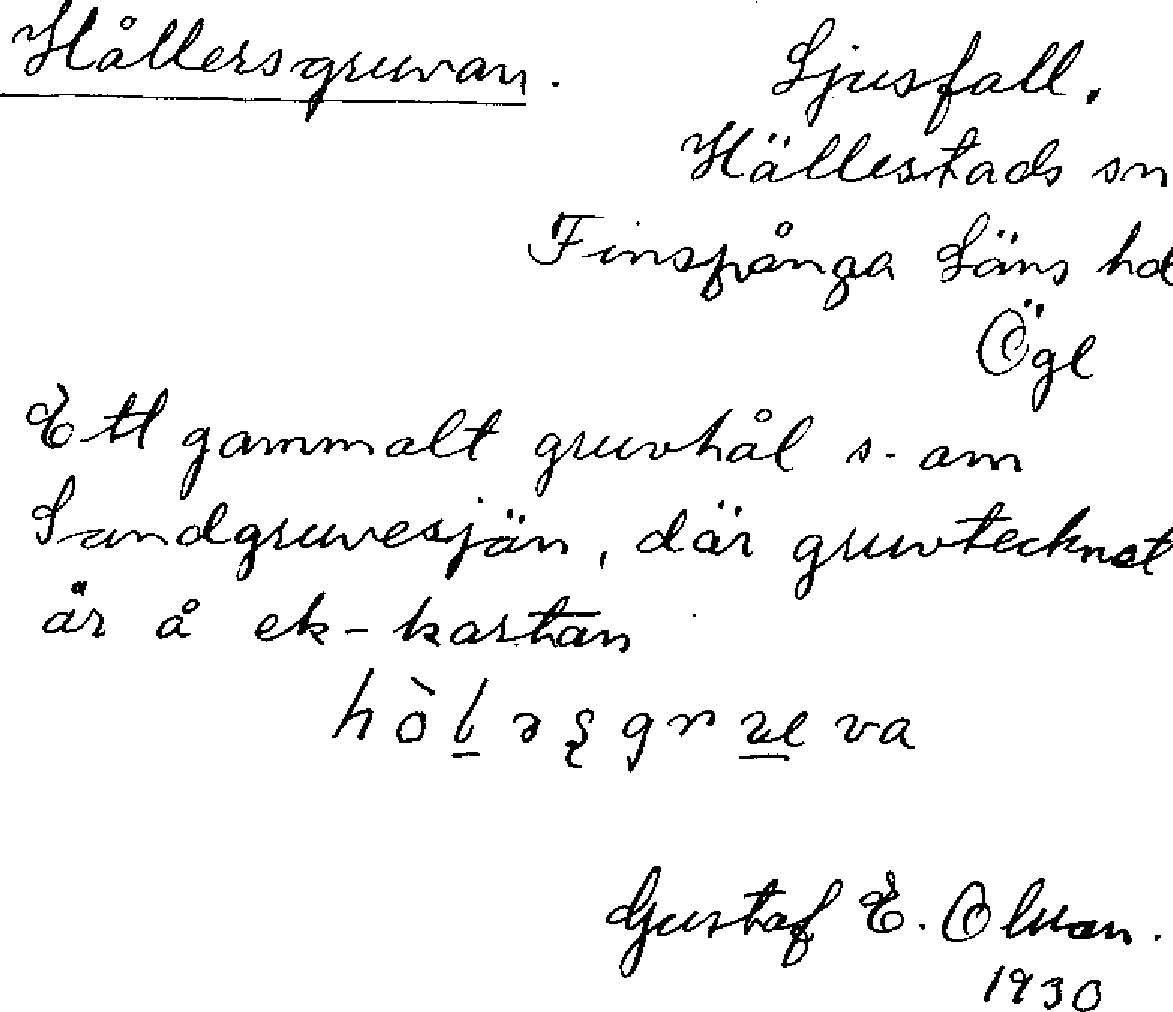 Hållersgruvan. Ljusfall.
Hällestads sn
Finspånga Läns hd
Ögl
Ett gammalt gruvhål s. om
Sandgruvesjön, där gruvtecknet
är å ek-kartan
hò̀lərsgruva
Gustaf E. Olsson.
1930